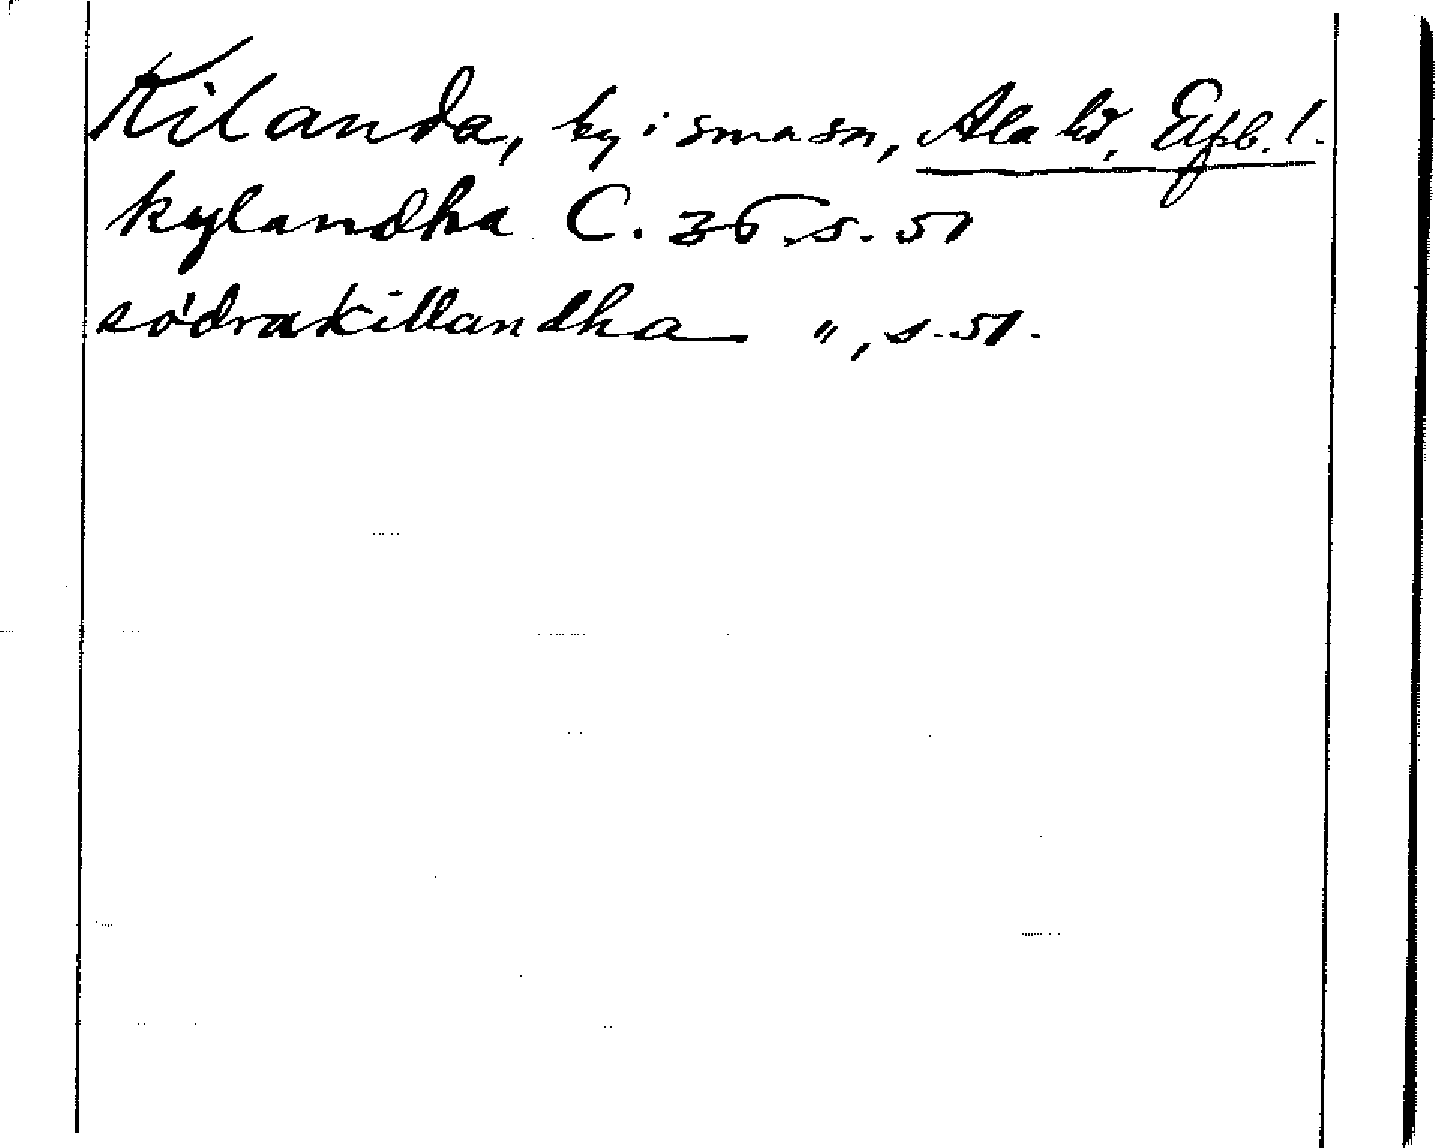 Kilanda, by i smma sn, Ale hd, Elfsb. l.
kylandha C. 36 s. 51
södrakillandha ", s. 51.